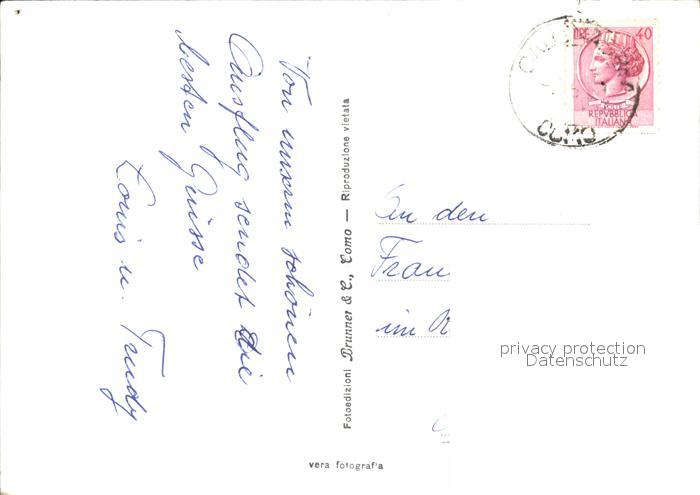 Von unsern schönen
Ausflug sendet die
besten Grüsse
Louis u. Trudy
Fotoedizioni Brunner & C., Como — Riproduzione vietata
vera fotografia
LIRE 40
REPVBBLICA
ITALIANA
COMO
An den
Frau
im
privacy protection
Datenschutz